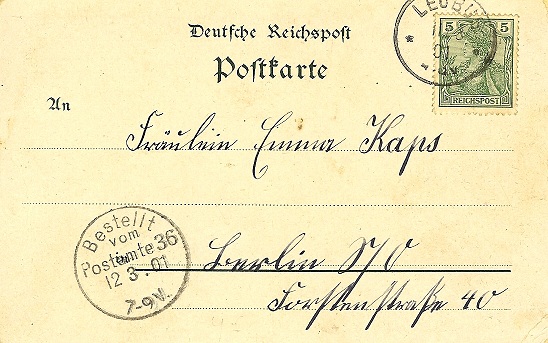 LEUB
01
5 5
REICHSPOST
Deutsche Reichspost
Postkarte
An
Fräulein Emma Kaps
Bestellt
vom
Postamte 36
12 3. 01
7-9V.
Berlin S/O
Forstenstraße 40